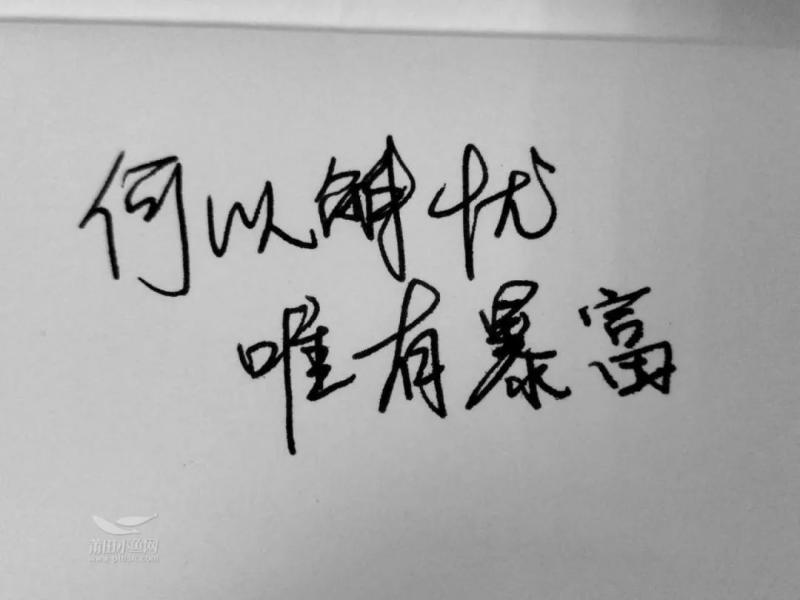 何以解忧
唯有暴富
莆田小鱼网